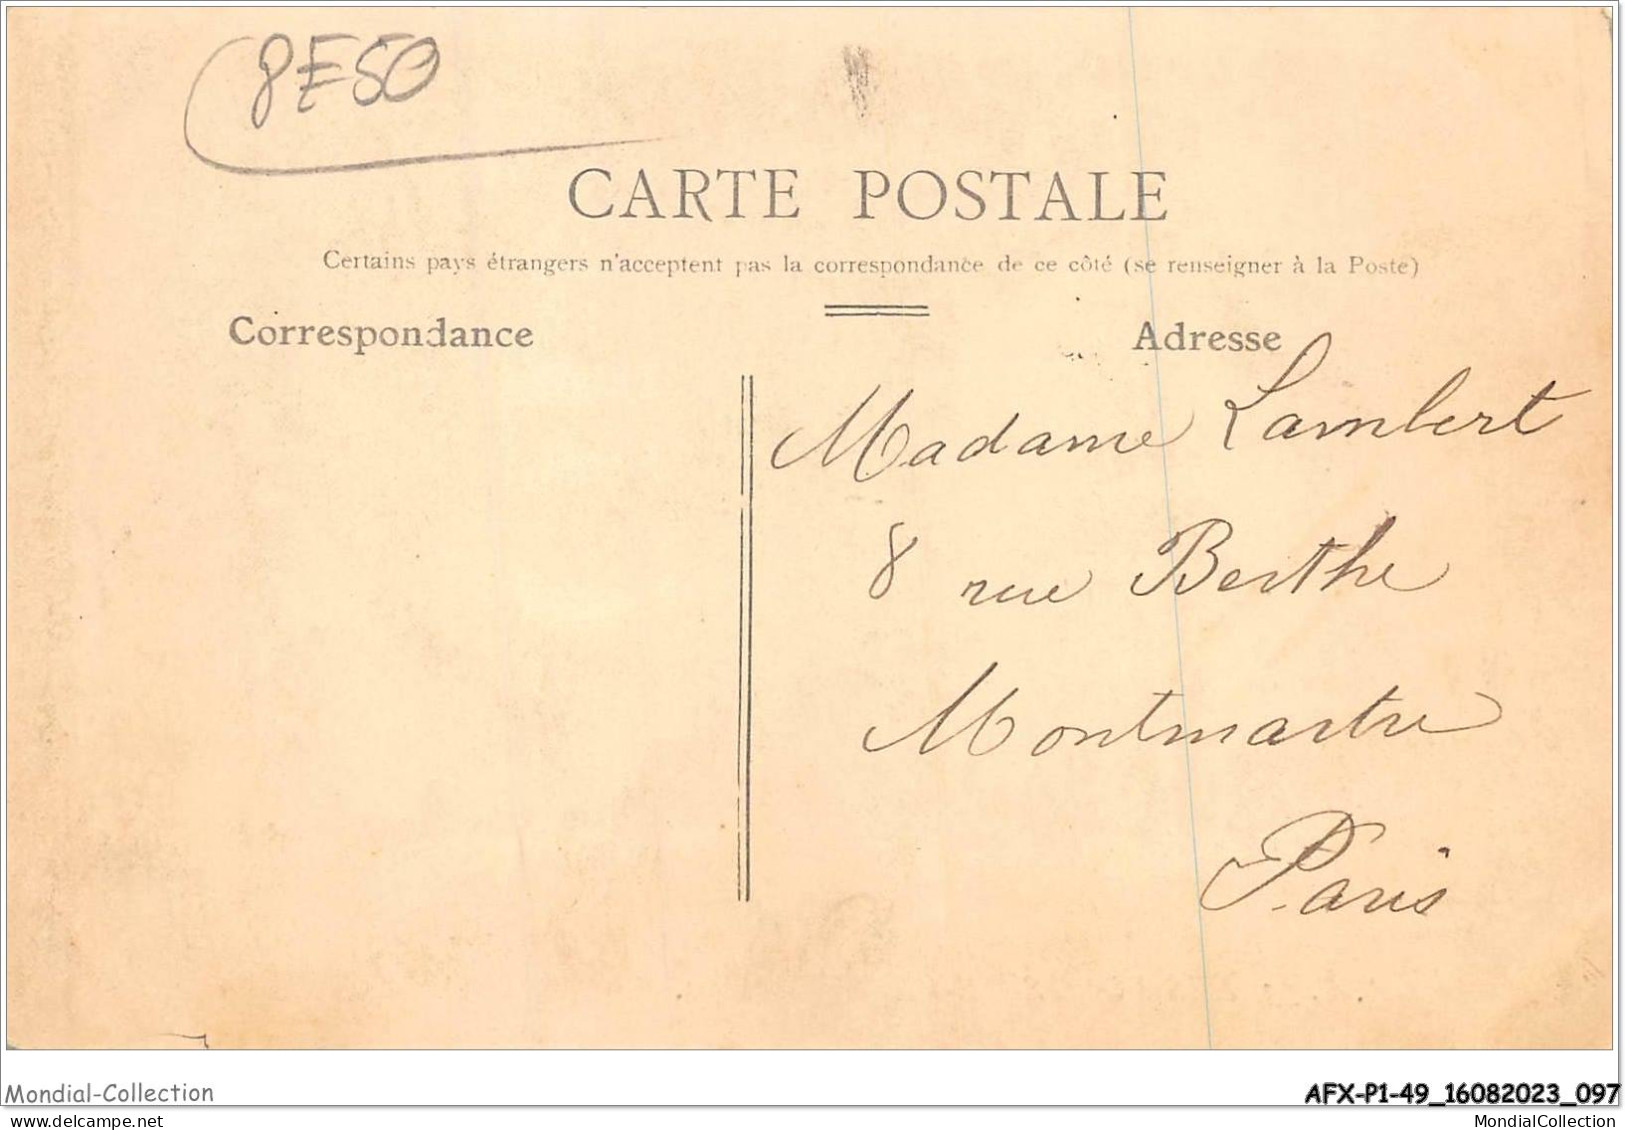 8E50
CARTE POSTALE
Certains pays étrangers n'acceptent pas la correspondance de ce côté (se renseigner à la Poste)
Correspondance
Adresse
Madame Lambert
8 rue Berthe
Montmartre
Paris
Mondial-Collection
AFX-P1-49_16082023_097
mondial-collection
MondialCollection